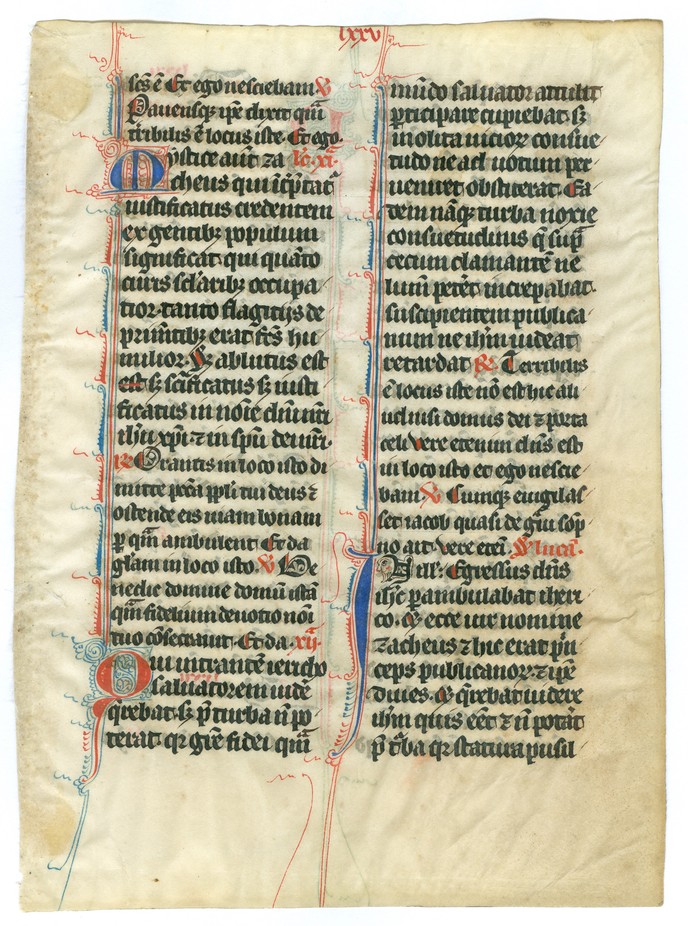 lxxv
scs ē Et ego nesciebam ℣
Pauensq; ip̄e dixit qm̄
tribilis ē locus iste Et ego
Mystice aut za lc̄ xi
cheus qui īt̄p̄tat᷒
iustificatus credentem
ex gentibꝫ populum
significat qui quāto
curis sc̄laribꝫ occupa
tior tanto flagitijs de
primētibꝫ erat fc̄s hu
milior Sꝫ ablutus est
est sꝫ sc̄ificatus sꝫ iusti
ficatus in noīe dn̄i nr̄i
ihū xp̄i ⁊ in sp̄u dei nr̄i
℟ Orantis in loco isto di
mitte pc̄ca pp̄li tui deus ⁊
ostende eis uiam bonam
ꝑ qm̄ ambulent Et da
glāɱ in loco isto ℣ Be
nedic domine domū istā
qm̄ fidelium deuotio noī
tuo cōsecrauit Et da xij
Qui intrantē iericho
saluatorem uidē
q̄rebat sꝫ p̄ turba ñ po
terat qr gr̄e fidei quā
mūdo saluator attulit
ꝑticipare cupiebat sꝫ
inolita uicioꝝ consue
tudo ne ad uotum per
ueniret obstiterat Ea
dem nāq; turba noxie
consuetudinis q̄ sup̄
cecum clamantē ne
lumē peteret increpabat
suscipientem publica
num ne ihm̄ uideat
retardat ℟ Terribilis
ē locus iste nō est hic ali
ud nisi domus dei ⁊ porta
celi Vere etenim dn̄s est
in loco isto et ego nescie
bam ℣ Cumq; euigilas
set iacob quasi de g̃ui sop̄
no ait vere etē Sc̄ lucā
In ill᷒ Egressus dn̄s
ihc̄ ꝑambulabat iheri
co Et ecce uir nomine
zacheus ⁊ hic erat p̄n
ceps publicanoꝝ ⁊ ip̄e
diues Et q̄rebat uidere
ihm̄ quis eēt ⁊ ñ potāt
p̄ t̄ba qr statura pusil